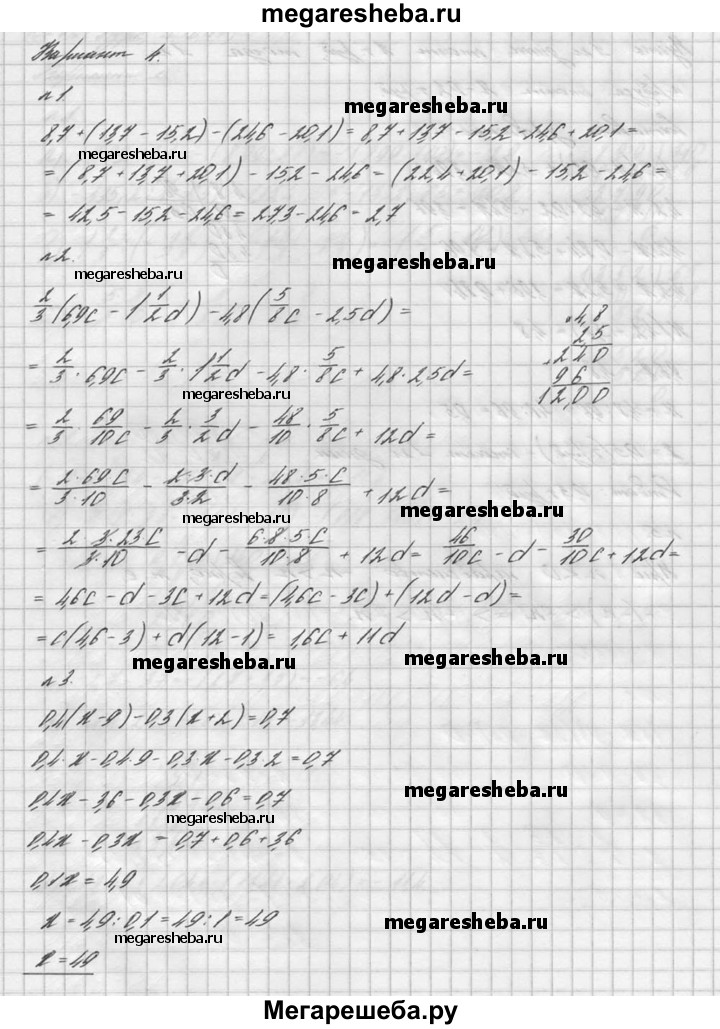 megaresheba.ru
Вариант 4.
№1.
megaresheba.ru
8,7+(13,7-15,2)-(24,6-20,1)=8,7+13,7-15,2-24,6+20,1=
megaresheba.ru
=(8,7+13,7+20,1)-15,2-24,6=(22,4+20,1)-15,2-24,6=
=42,5-15,2-24,6=27,3-24,6=2,7
№2.
megaresheba.ru
megaresheba.ru
2/3(6,9c-1 1/2d)-4,8(5/8c-2,5d)=
=2/3·6,9c-2/3·1 1/2d-4,8·5/8c+4,8·2,5d=
×4,8
25
240
96
12,00
megaresheba.ru
=2/3·69/10c-2/3·3/2d-48/10·5/8c+12d=
=2·69c/3·10-2·3·d/3·2-48·5·c/10·8+12d=
megaresheba.ru
megaresheba.ru
=2·3·23c/3·10-d-6·8·5·c/10·8+12d=46/10c-d-30/10c+12d=
=4,6c-d-3c+12d=(4,6c-3c)+(12d-d)=
=c(4,6-3)+d(12-1)=1,6c+11d
megaresheba.ru
megaresheba.ru
№3.
0,4(x-9)-0,3(x+2)=0,7
0,4·x-0,4·9-0,3·x-0,3·2=0,7
0,4x-3,6-0,3x-0,6=0,7
megaresheba.ru
megaresheba.ru
0,4x-0,3x=0,7+0,6+3,6
0,1x=4,9
x=4,9:0,1=49:1=49
megaresheba.ru
megaresheba.ru
x=49
Мегарешеба.ру